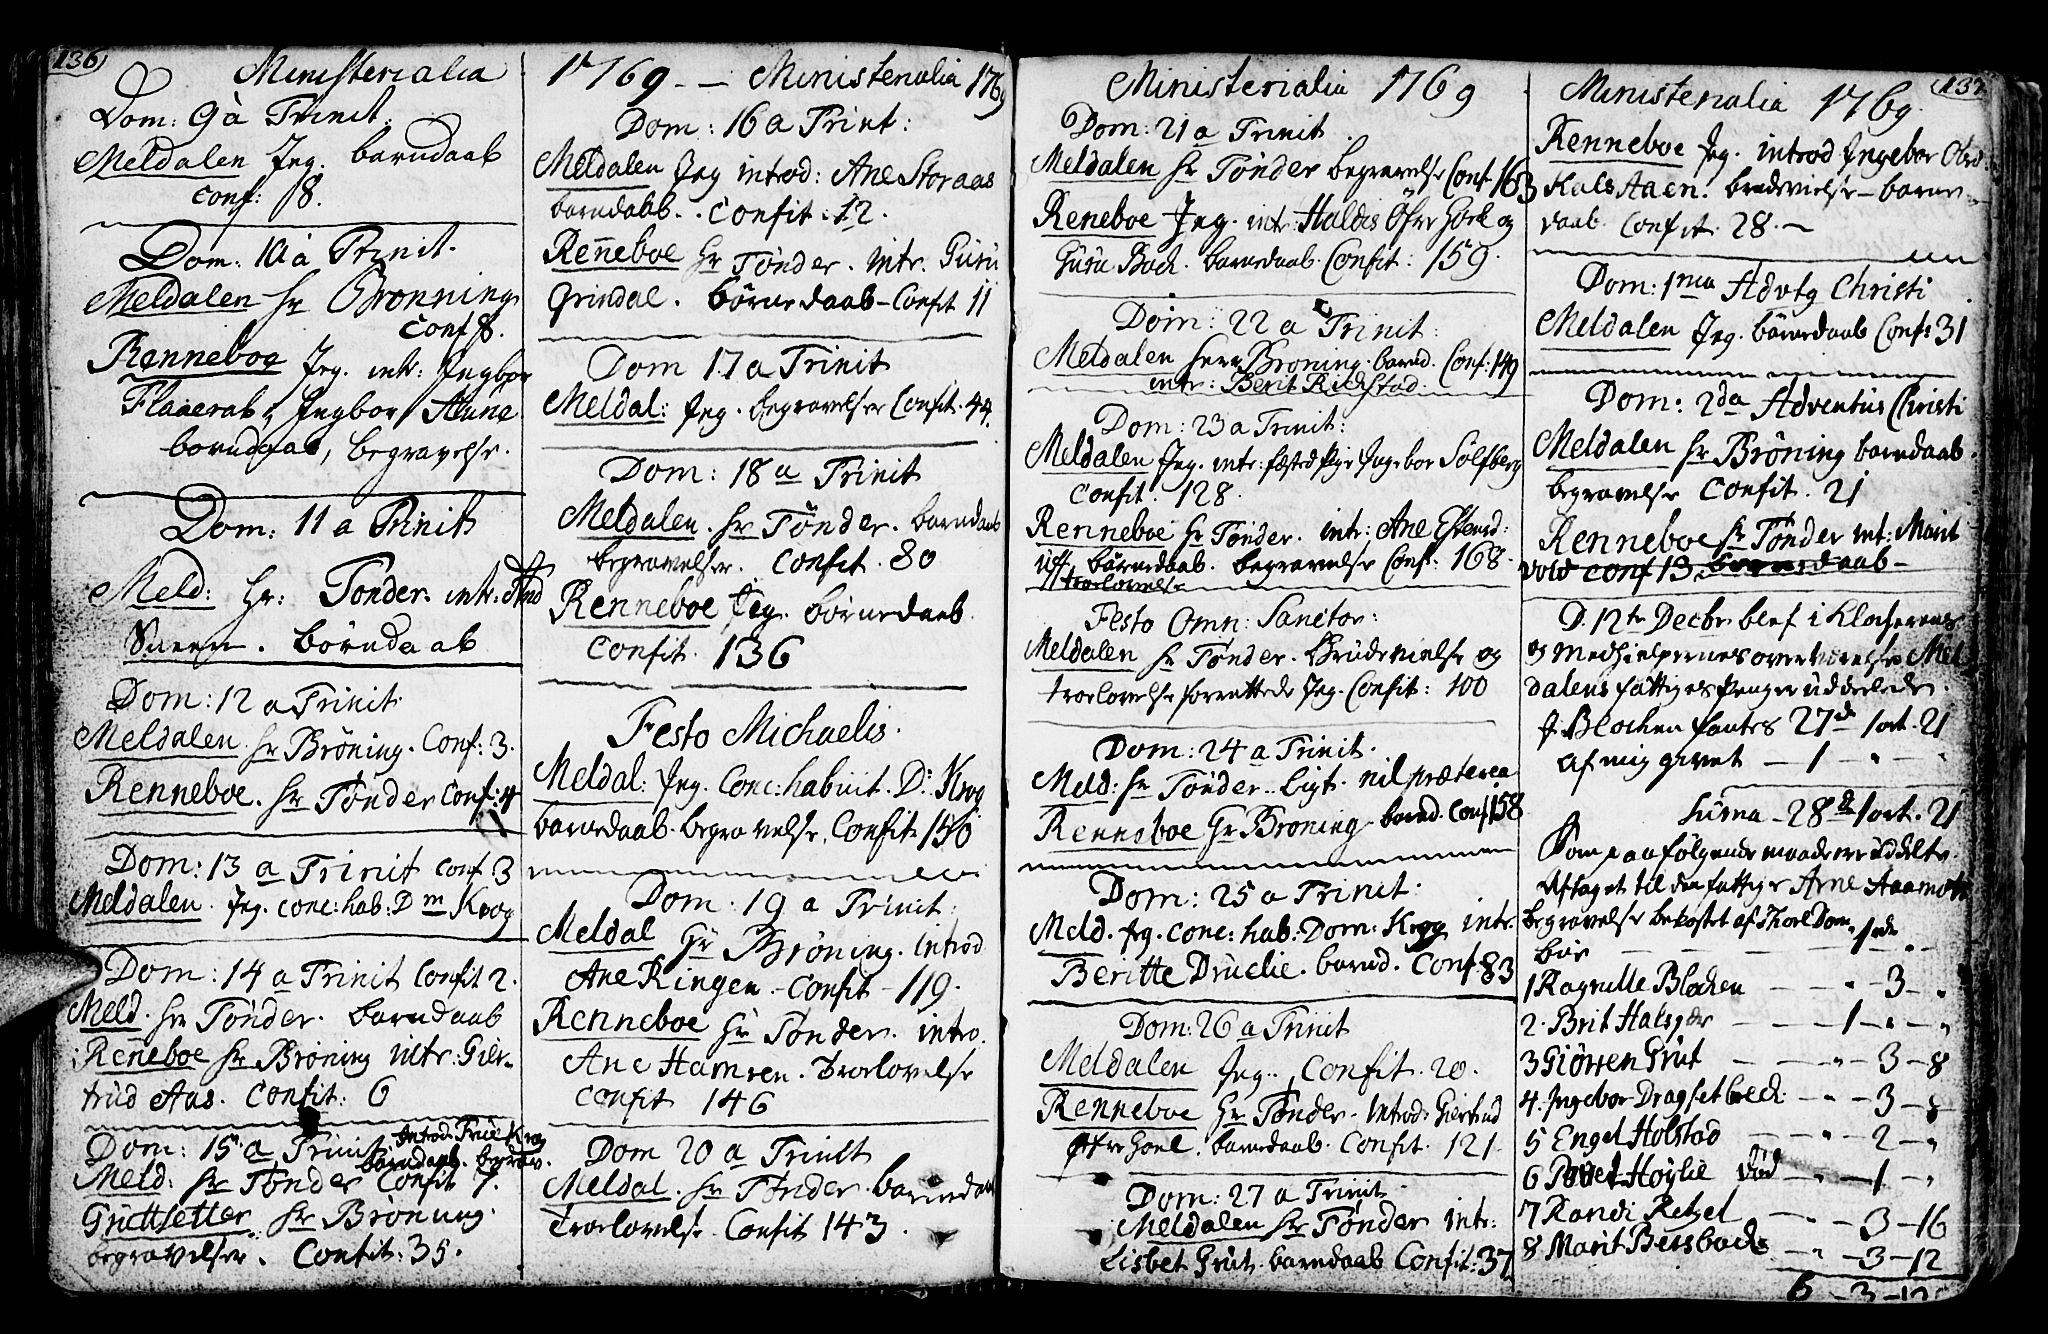 136
Ministerialia
Dom: 9 à Trinit:
Meldalen Jeg. barndaab
conf: 8.
Dom: 10 à Trinit.
Meldalen Hr Brønning
conf 8.
Renneboe Jeg. intr: Ingbor
Ingbor Aune
barndaab, begravelse.
Dom: 11 a Trinit
Meld: Hr: Tønder. intr:
børndaab
Dom: 12 a Trinit
Meldalen Hr Brøning. Conf: 3.
Renneboe. Hr Tønder Conf: 4
Dom: 13 a Trinit conf 3
Meldalen. Jeg. conc: hab: Dm Krog
Dom: 14 a Trinit Confit 2.
Meld. Hr Tønder. barndaab
Renneboe Hr Brøning intr: Gier-
trud Aas. Confit: 6
Dom: 15. a Trinit Introd. Frue Krog
barndaab. begrav.
Meld: Hr Tønder Confit 7.
Hr Brøning.
begravelser. Confit: 35.
1769 -- Ministerialia 1769
Dom: 16 a Trint:
Meldalen Jeg introd: Ane Storaas
barndabb. Confit: 12.
Renneboe Hr Tønder. intr. Guru
Grindal. børnedaab - Confit 11
Dom 17 a Trinit
Meldal: Jeg. begravelser Confit. 44.
Dom: 18 a Trinit
Meldalen. Hr Tønder. barndaab
begravelser. Confit. 80
Renneboe Jeg. børnedaab
Confit. 136
Festo Michaelis.
Meldal: Jeg. Conc: habuit. D: Krog
barnedaab. begravelse. Confit. 150
Dom. 19 a Trinit:
Meldal Hr Brøning. introd
Ane Ringen - Confit - 119.
Renneboe Hr Tønder. intro.
Ane Hamren. Trolovelse
Confit 146
Dom 20 a Trinit
Meldal. Hr Tønder. barnedaab
Troelovelse. Confit 143.
Ministerialia 1769
Dom: 21 a Trinit.
Meldalen Hr Tønder begravelse Conf. 163
Reneboe Jeg. intr. Haldis Øfre Hoel og
Guru Bach. barnedaab. Confit: 159.
Dom: 22 a Trinit:
Meldalen Herr Brøning. barnd. Conf: 149
intr: Berit Richstad.
Dom: 23 a Trinit:
Meldalen Jeg. intr: fæsted Pige Ingebor Solsberg
Confit. 128.
Renneboe Hr Tønder. intr: Ane Estensd:
Uff. børnedaab. begravelse Conf: 168.
troelovelse
Festo Omn: Sanctor:
Meldalen Hr Tønder. Brudevielse og
troelovelse forrettede Jeg. Confit: 100
Dom: 24 a Trinit.
Meld: Hr Tønder. nil præterea
Renneboe Hr Brøning barnd. Conf 158
Dom: 25 a Trinit.
Meld. Jeg. conc: hab: Dom: Krog intr.
Beritte Druelie. barnd. Conf. 83
Dom: 26 a Trinit
Meldalen Jeg. Confit. 20.
Renneboe Hr Tønder. introd. Giertrud
Øfre Hoel. barndaab. Confit. 121.
Dom: 27 a Trinit.
Meldalen Hr Tønder intr:
Lisbet Grut. barndaab Confit: 37.
137
Ministerialia 1769.
Renneboe Jeg. introd Ingebor Olsd:
Hals Aaen. brudevielse - barne-
daab. Confit. 28. -
Dom: 1ma Advtg Christi
Meldalen Jeg. børnedaab Conf: 31
Dom: 2da Adventus Christi
Meldalen Hr Brøning barndaab.
begravelse Confit. 21
Renneboe Hr Tønder int: Marit
Vold conf 13. børnedaab -
D. 12te Decbr. blef i Klockerens
og Medhielpernes overværelse Mel
dalens fattiges Penger uddeelede.
J Blocken fantes 27d 1 ort. 21
Af mig givet - 1 - " -
Suma - 28d 1 ort. 21
Som paa følgende maade er uddelte.
Aftaget til den fattige Arne Aamots
begravelse bekostet af Thoel Dom-
1 Ragnille Blocken - 3 - "
2. Brit Halsgær - 1 - " - "
3 Giørren Grut - " - 3 - 8
4. Ingebor Dragsetbeck - " - 3 - 8
5 Engel Holstad - " - 2 - "
6 Povel Høylie død - " - 1 - "
7 Randi Retzel - 3 - 16
8 Marit Bersback - " - 3 - 12
6 - 3 - 12